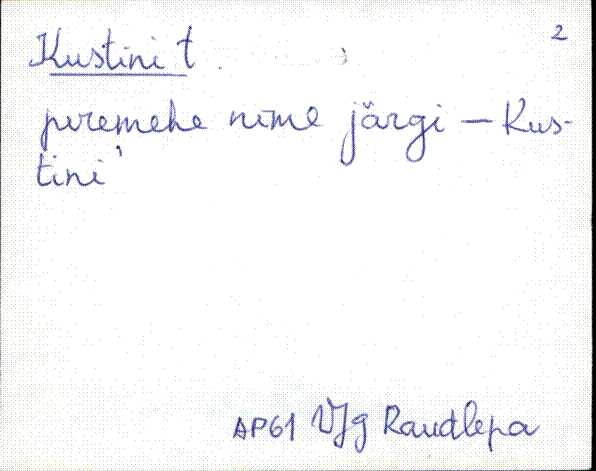 2
Kustini t.
peremehe nime järgi — Kus-
tini
AP61 VJg Raudlepa